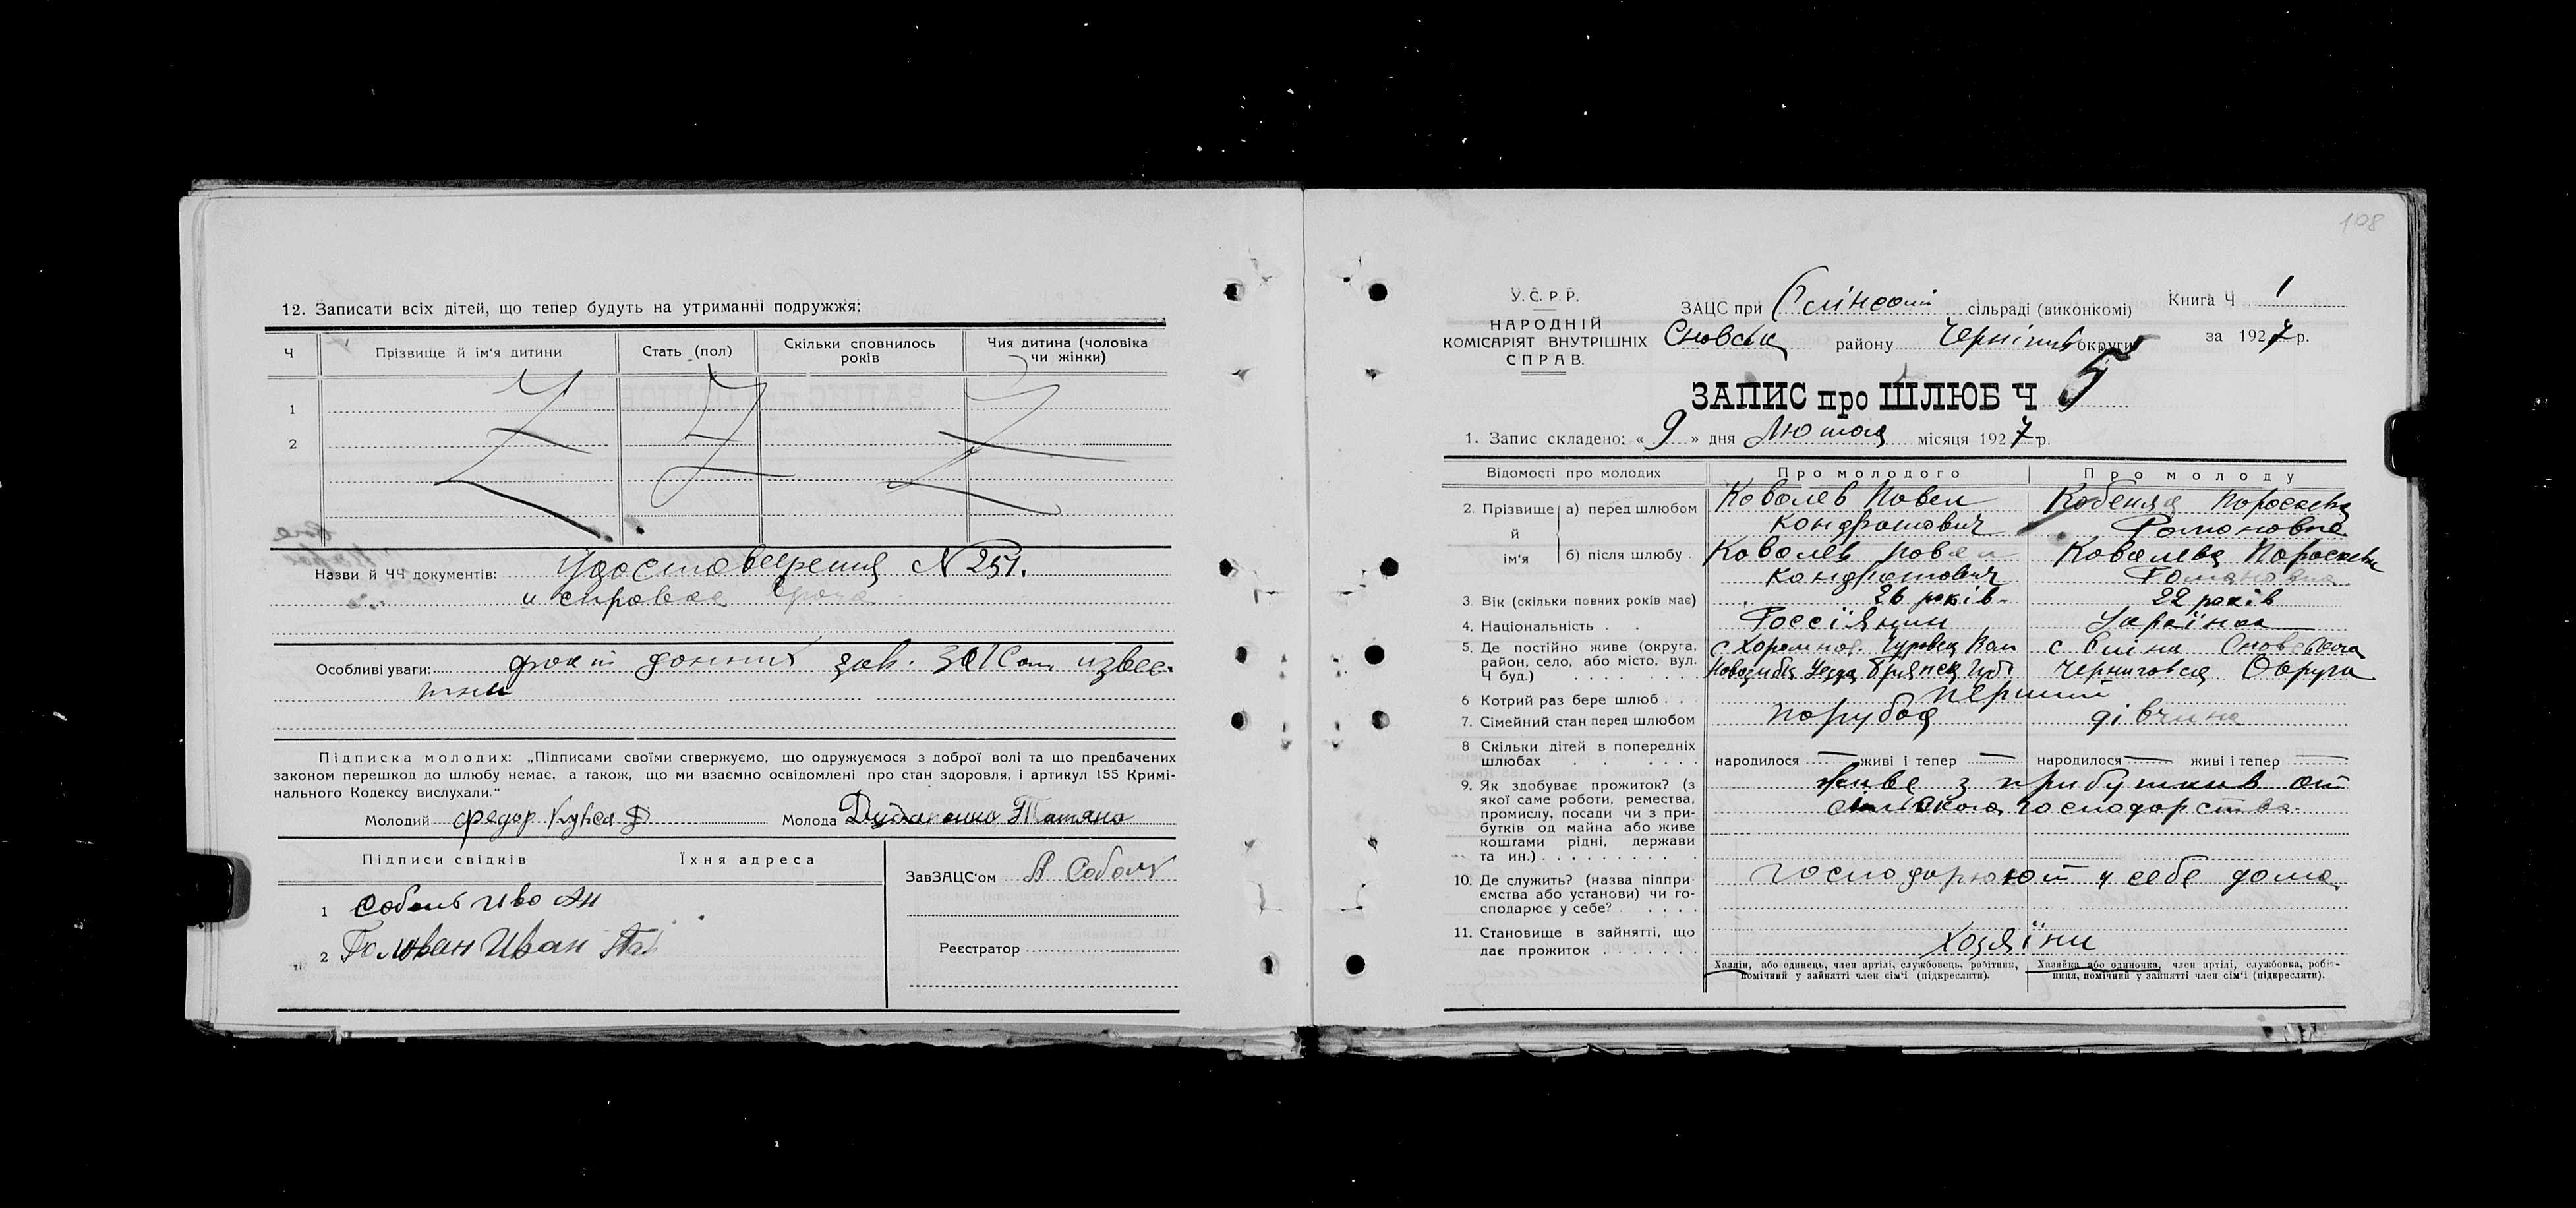 12. Записати всіх дітей, що тепер будуть на утриманні подружжя:
Ч
Прізвище й ім'я дитини
Стать (пол)
Скільки сповнилось років
Чия дитина (чоловіка чи жінки)
1
2
Назви й ЧЧ документів: Удостоверения N 251.
и справка врача
Особливі уваги: факт данних зав. ЗАГСом извес-
тни
Підписка молодих: „Підписами своїми стверджуємо, що одружуємося з доброї волі та що предбачених
законом перешкод до шлюбу немає, а також, що ми взаємно освідомлені про стан здоровля, і артикул 155 Кримі-
нального Кодексу вислухали."
Молодий Федор Молода Татяна
Підписи свідків Їхня адреса
1 Соболь Иван
2 Иван
ЗавЗАЦС'ом Соболь
Реєстратор
108
У.С.Р.Р.
НАРОДНІЙ
КОМІСАРІЯТ ВНУТРІШНІХ
СПРАВ.
ЗАЦС при сільраді (виконкомі)
Сновськ району Чернігів округи
Книга Ч 1
за 1927 р.
ЗАПИС про ШЛЮБ Ч 5
1. Запис складено: « 9 » дня Лютого місяця 1927 р.
Відомості про молодих
Про молодого
Про молоду
2. Прізвище й ім'я
а) перед шлюбом
Ковалев Павел
Кондратович
Параскева
Романовна
б) після шлюбу
Ковалев Павел
Кондратович
Ковалева Параскева
Романовна
3. Вік (скільки повних років має)
26 років
22 років
4. Національність
Россіянин
Українка
5. Де постійно живе (округа,
район, село, або місто, вул.
Ч буд.)
с
Уезда Брянск Губ
с Сновск
Черниговск Округа
6 Котрий раз бере шлюб
перший
7. Сімейний стан перед шлюбом
парубок
дівчина
8 Скільки дітей в попередніх
шлюбах
народилося — живі і тепер —
народилося — живі і тепер —
9. Як здобуває прожиток? (з
якої саме роботи, ремества,
промислу, посади чи з при-
бутків од майна або живе
коштами рідні, держави
та ин.)
живе з прибутків от
сільского господарства
10. Де служить? (назва підпри-
ємства або установи) чи го-
сподарює у себе?
господарюют у себе дома
11. Становище в зайнятті, що
дає прожиток
хозяїни
Хазяїн, або одинець, член артілі, службовець, робітник,
помічний у зайнятті член сім'ї (підкреслити).
Хазяйка або одиночка, член артілі, службовка, робіт-
ниця, помічний у зайнятті член сім'ї (підкреслити).